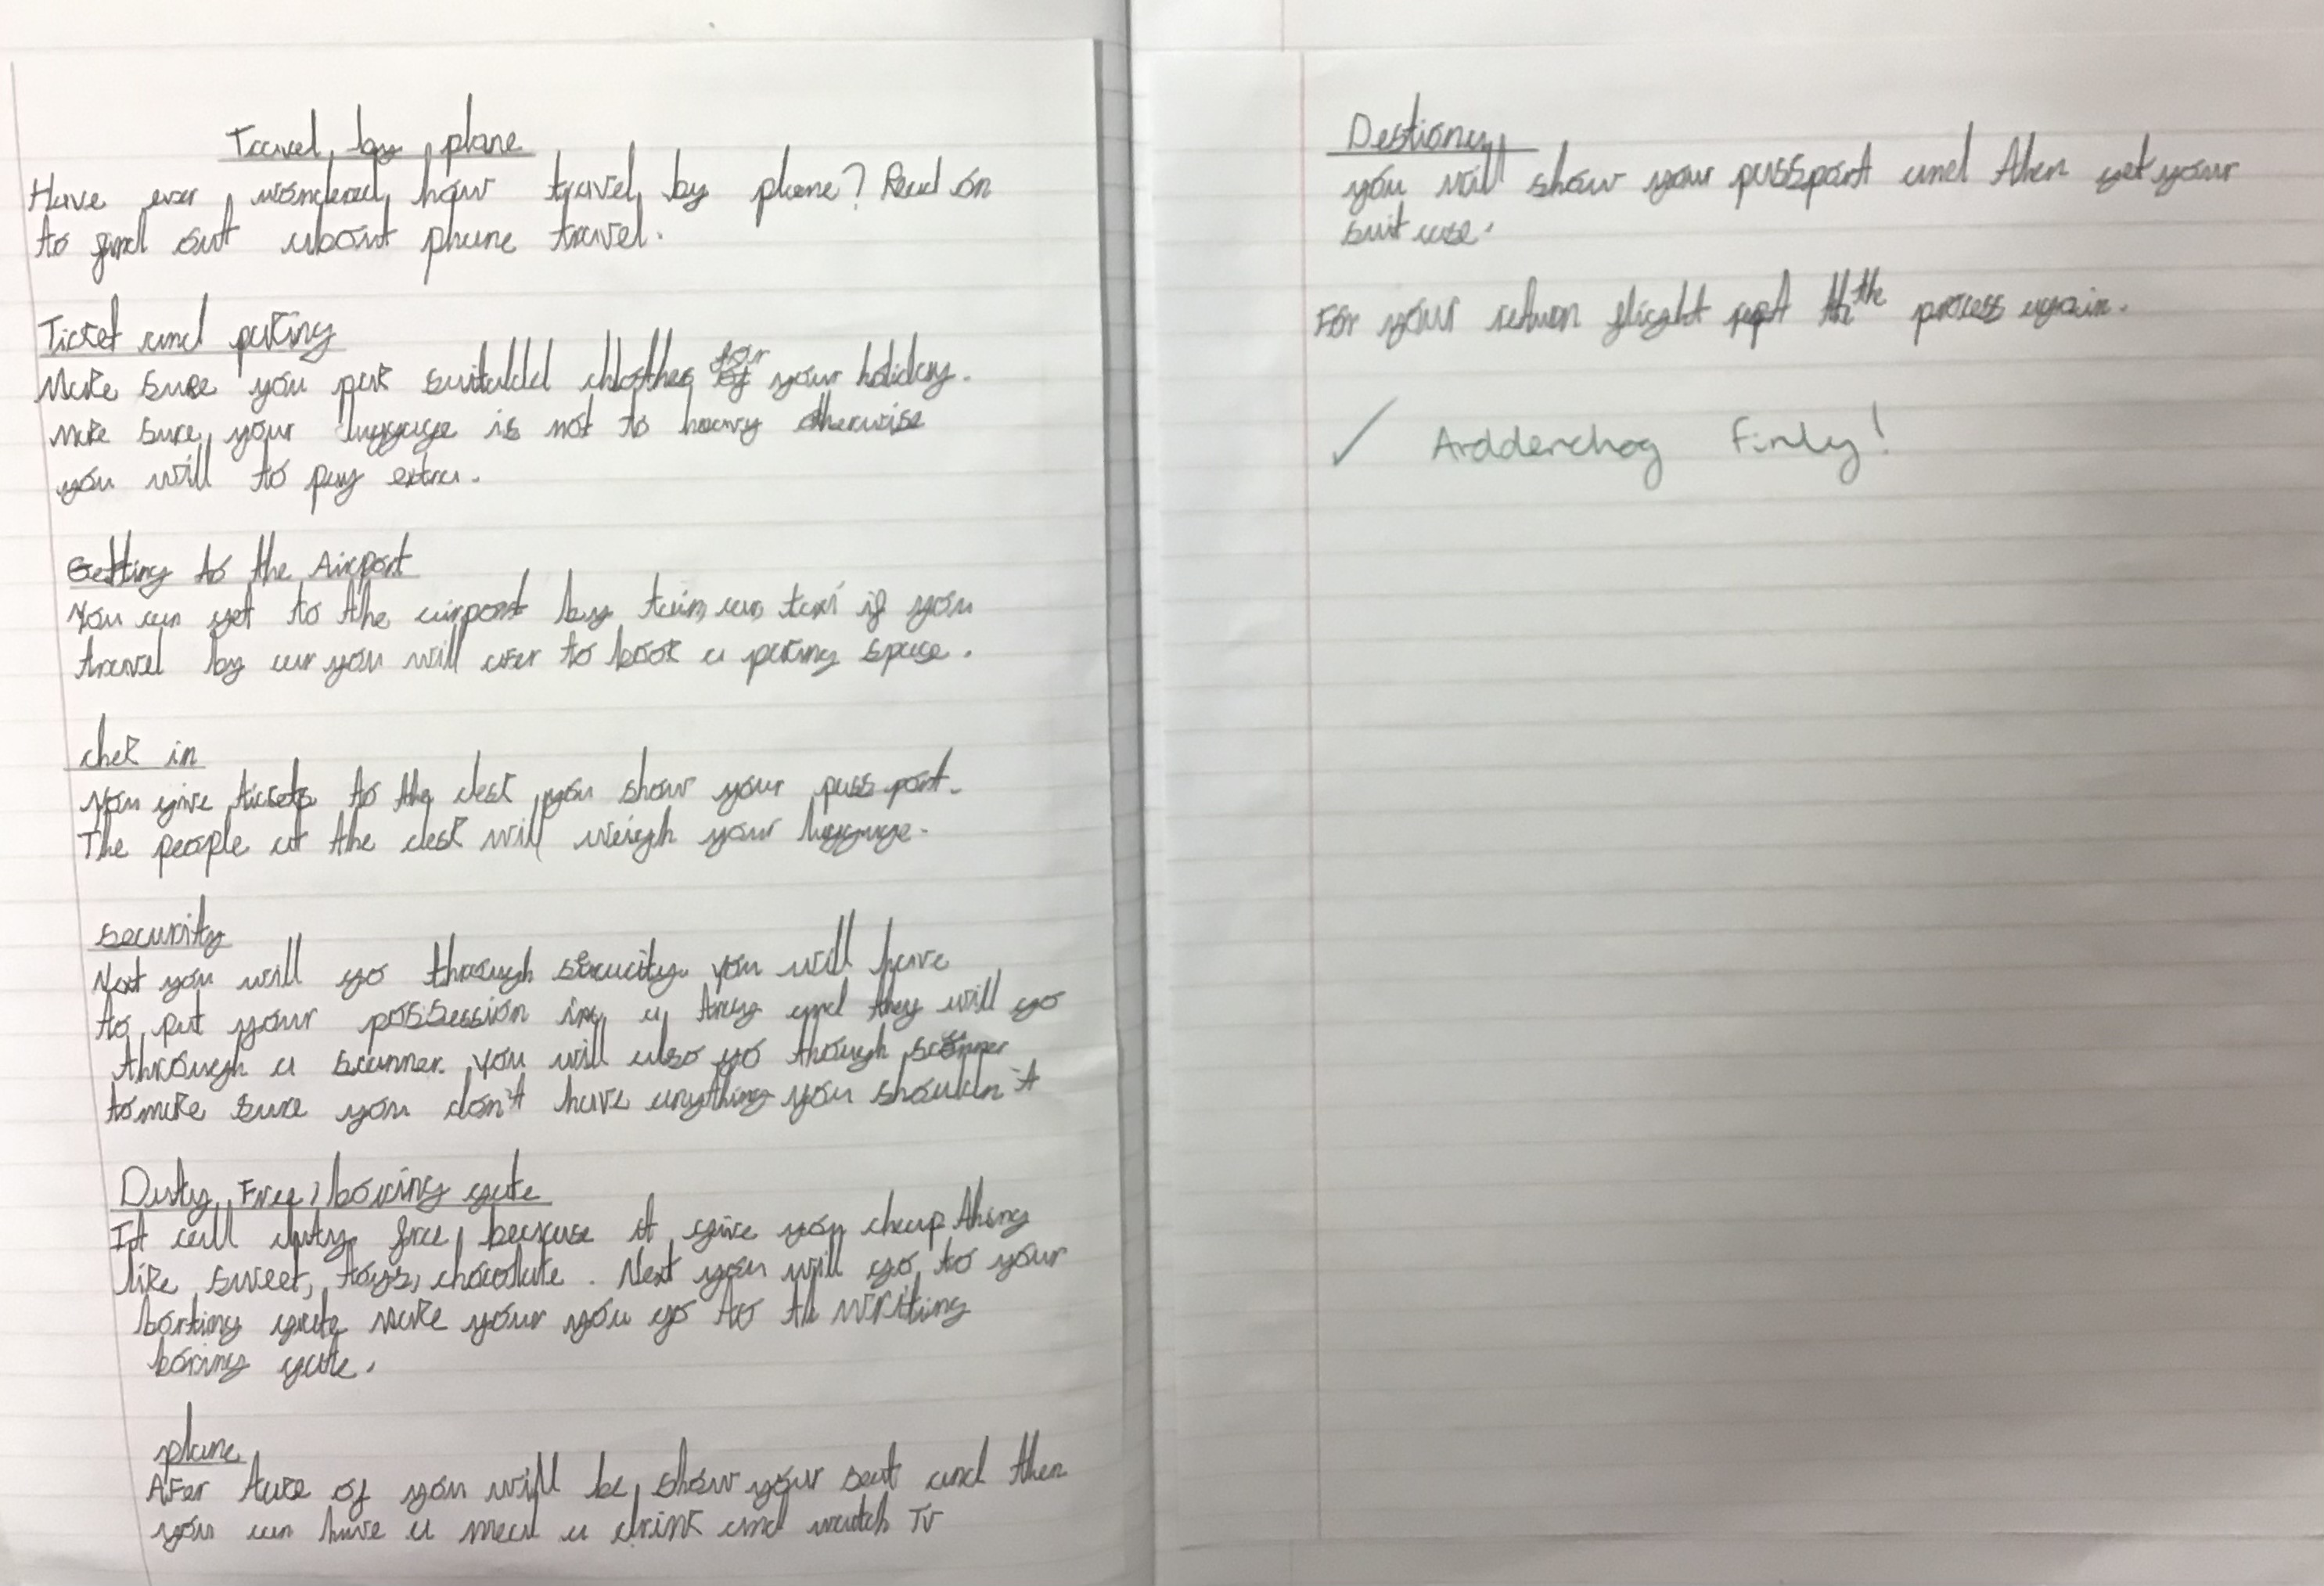 Travel by plane
Have ever wondered how travel by plane? Read on
to find out about phane travel.
Ticket and paking
Make sure you pak suitabld chlothes for your holiday.
make sure your luggage is not to heavy otherwise
you will to pay extra.
Getting to the Airport
You can get to the airport by tain, car, taxi if you
travel by car you will to book a paking space.
chek in
You give tickets to the desk you show your pass port.
The people at the desk will weigh your luggage.
security
Next you will go through you will have
to put your possession in a tray and they will go
through a scanner. you will also go though scanner
to make sure you don't have anything you shouldn't
Duty Free, boring gate
It call duty free because it give you cheap thing
like sweet, toys, chocolate. Next you will go to your
borting gate make your you go to th writing
boring gate.
plane
AFer take of you will be show your seat and then
you can have a meal a drink and watch TV
Destiony
you will show your passport and then get your
suit case.
For your retuon flight the process again.
✓ Ardderchog Finly!